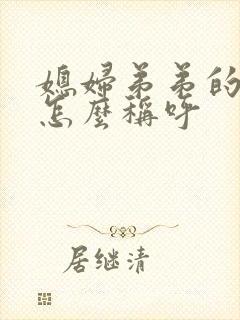 媳婦弟弟的
怎麼稱呼
居继清